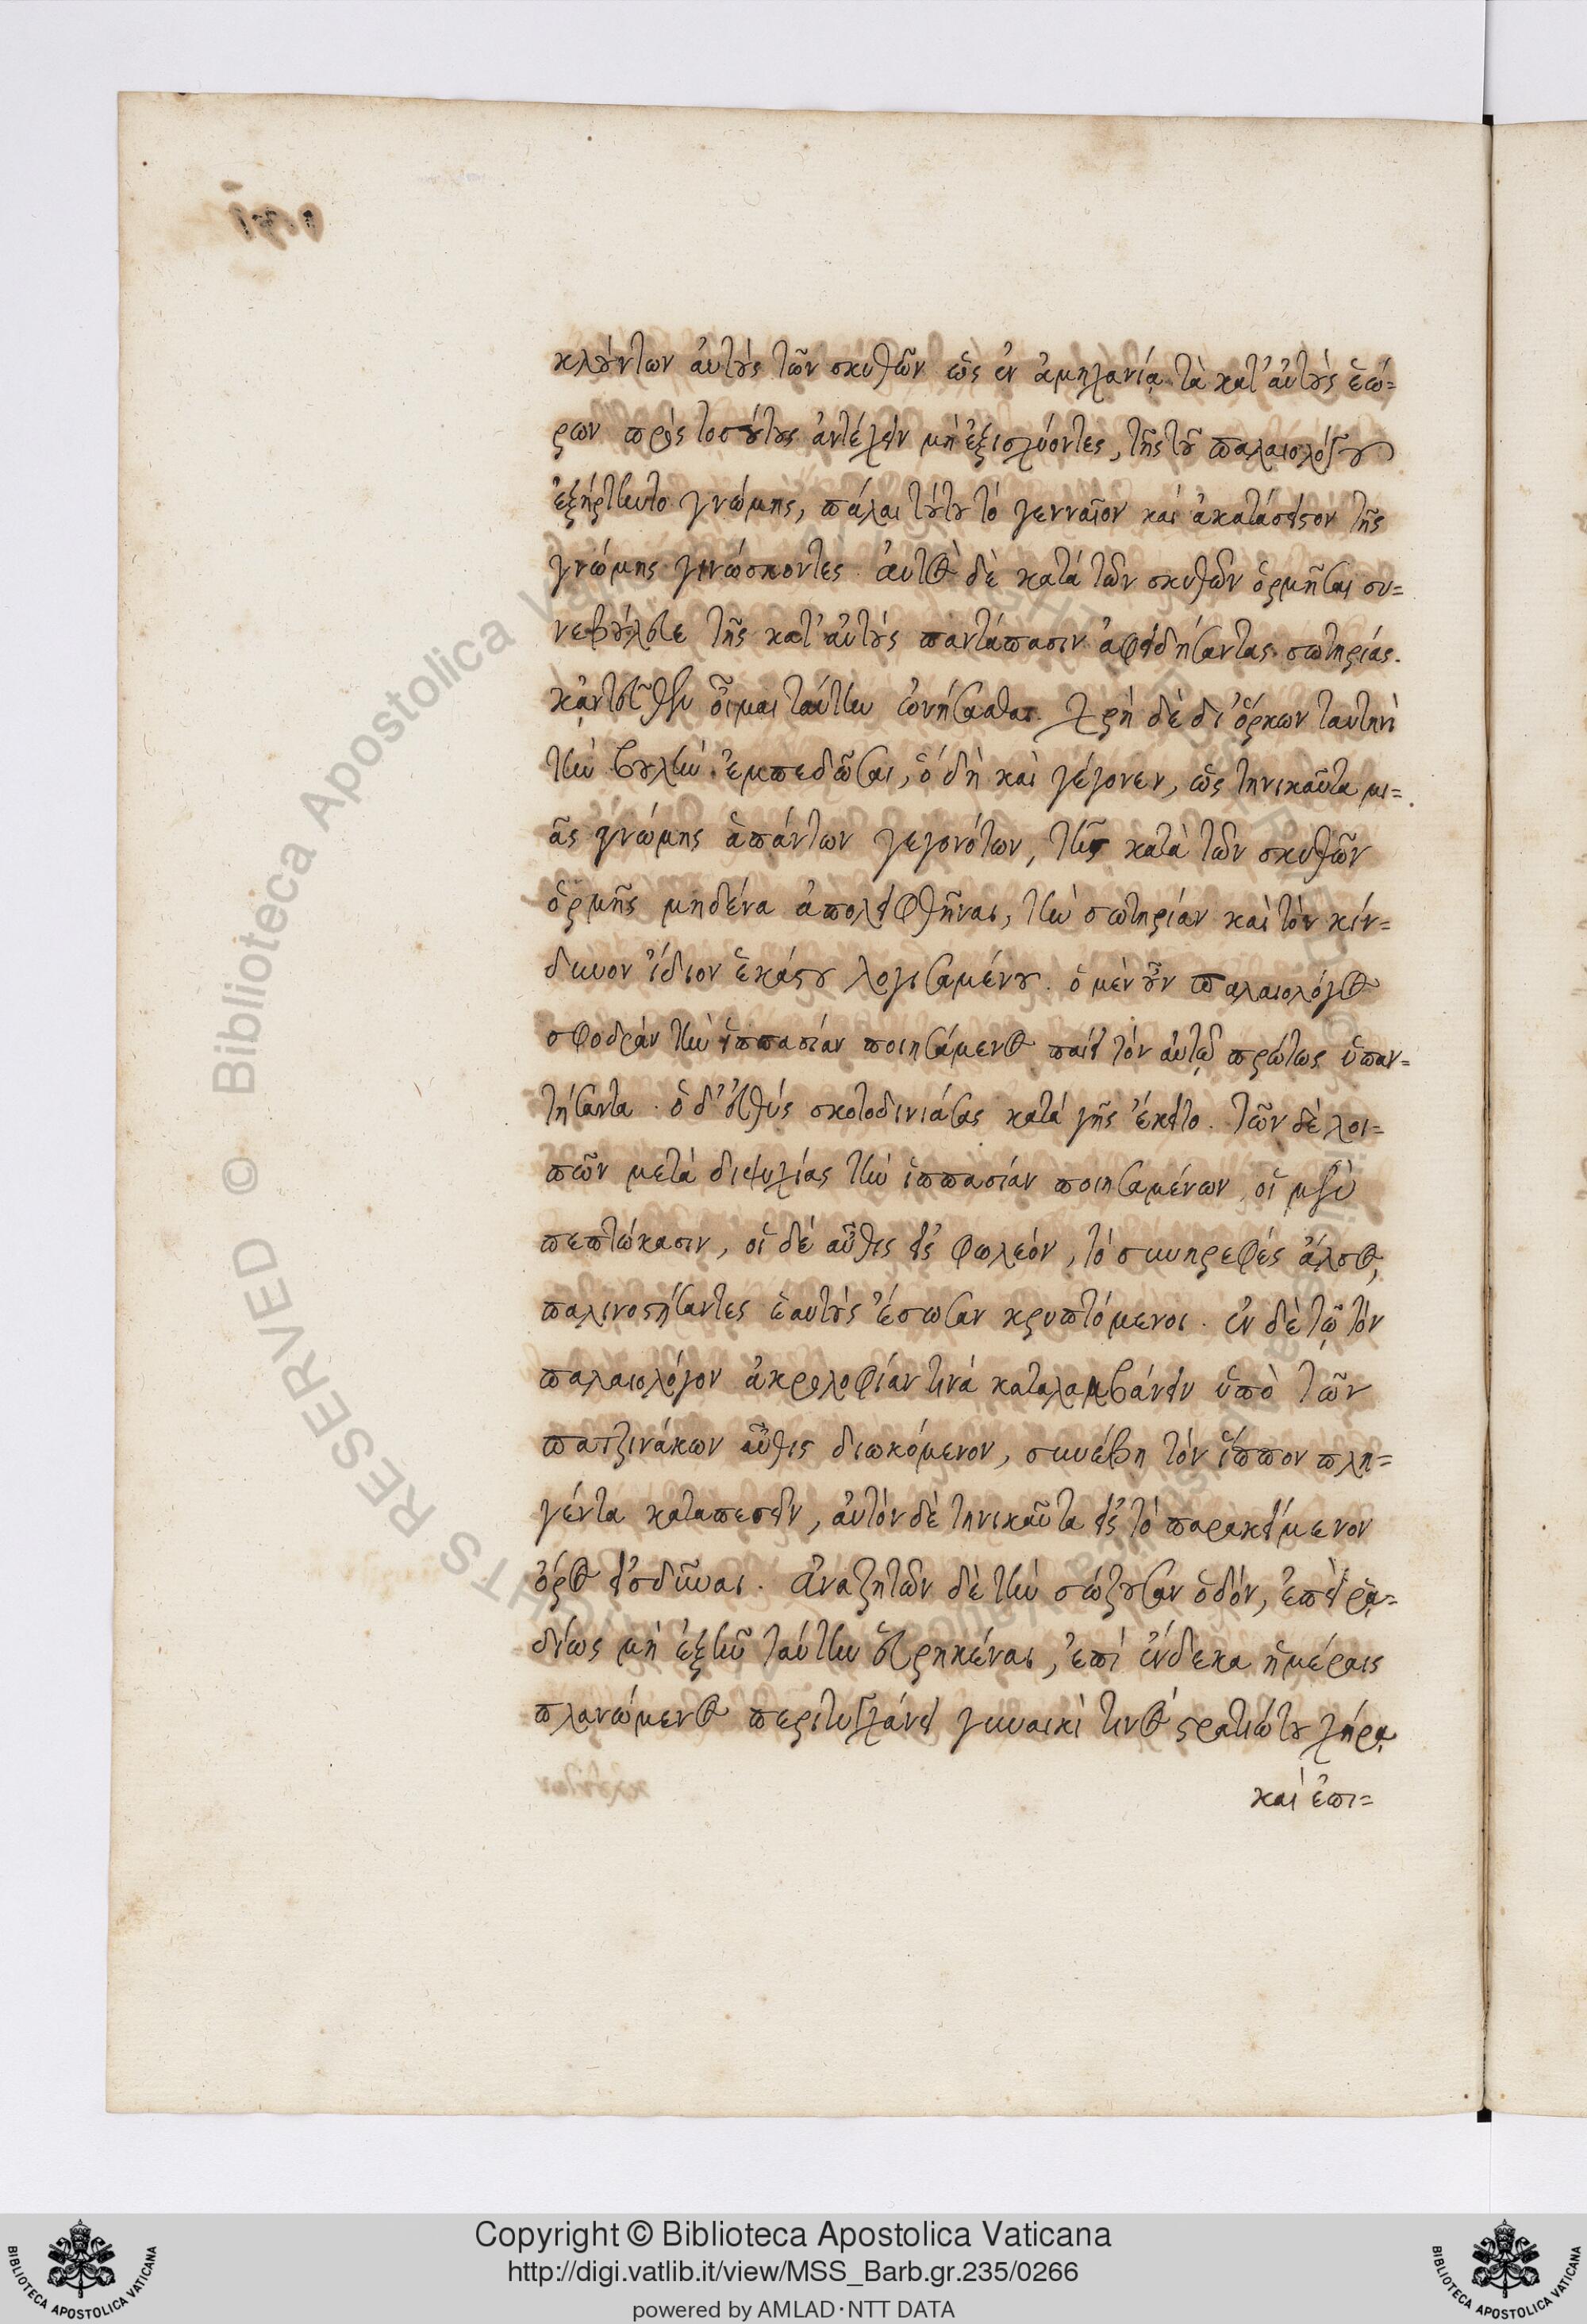 κλούντων αὐτοὺς τῶν σκυθῶν ὡς ἐν ἀμηχανίᾳ τὰ κατ' αὐτοὺς ἑώ=
ρων πρὸς τοσούτους ἀντέχειν μὴ ἐξισχύοντες, τῆς τοῦ παλαιολόγου
ἐξήρτηντο γνώμης, πάλαι τούτου τὸ γενναῖον καὶ ἀκατάσειστον τῆς
γνώμης γινώσκοντες. αὐτὸς δὲ κατὰ τῶν σκυθῶν ὁρμῆσαι συ=
νεβούλευε τῆς κατ' αὐτοὺς παντάπασιν ἀφειδήσαντας σωτηρίας.
κἀντεῦθεν οἶμαι ταύτην ὠνήσασθαι. χρὴ δὲ δι' ὅρκων ταυτηνὶ
τὴν βουλὴν ἐμπεδῶσαι, ὃ δὴ καὶ γέγονεν, ὡς τηνικαῦτα μι=
ᾶς γνώμης ἁπάντων γεγονότων, τῆς κατὰ τῶν σκυθῶν
ὁρμῆς μηδένα ἀπολειφθῆναι, τὴν σωτηρίαν καὶ τὸν κίν=
δυνον ἴδιον ἑκάστου λογισαμένου. ὁ μὲν οὖν παλαιολόγος
σφοδρὰν τὴν ἱππασίαν ποιησάμενος παίει τὸν αὐτῷ πρώτως ὑπαν=
τήσαντα. ὁ δ' εὐθὺς σκοτοδινιάσας κατὰ γῆς ἔκειτο. τῶν δὲ λοι=
πῶν μετὰ διψυχίας τὴν ἱππασίαν ποιησαμένων, οἱ μὲν
πεπτώκασιν, οἱ δὲ αὖθις εἰς φωλεὸν, τὸ συνηρεφὲς ἄλσος,
παλινοστήσαντες ἑαυτοὺς ἔσωσαν κρυπτόμενοι. ἐν δὲ τῷ τὸν
παλαιολόγον ἀκρολοφίαν τινὰ καταλαμβάνειν ὑπὸ τῶν
πατζινάκων αὖθις διωκόμενον, συνέβη τὸν ἵππον πλη=
γέντα καταπεσεῖν, αὐτὸν δὲ τηνικαῦτα εἰς τὸ παρακείμενον
ὄρος εἰσδῦναι. ἀναζητῶν δὲ τὴν σώζουσαν ὁδὸν, ἐπεὶ ρᾳ=
δίως μὴ ἐξῆν ταύτην εὑρηκέναι, ἐπὶ ἕνδεκα ἡμέραις
πλανώμενος περιτυγχάνει γυναικὶ τινὸς στρατιώτου χήρᾳ
καὶ ἐπι=
Copyright © Biblioteca Apostolica Vaticana
http://digi.vatlib.it/view/MSS_Barb.gr.235/0266
powered by AMLAD·NTT DATA